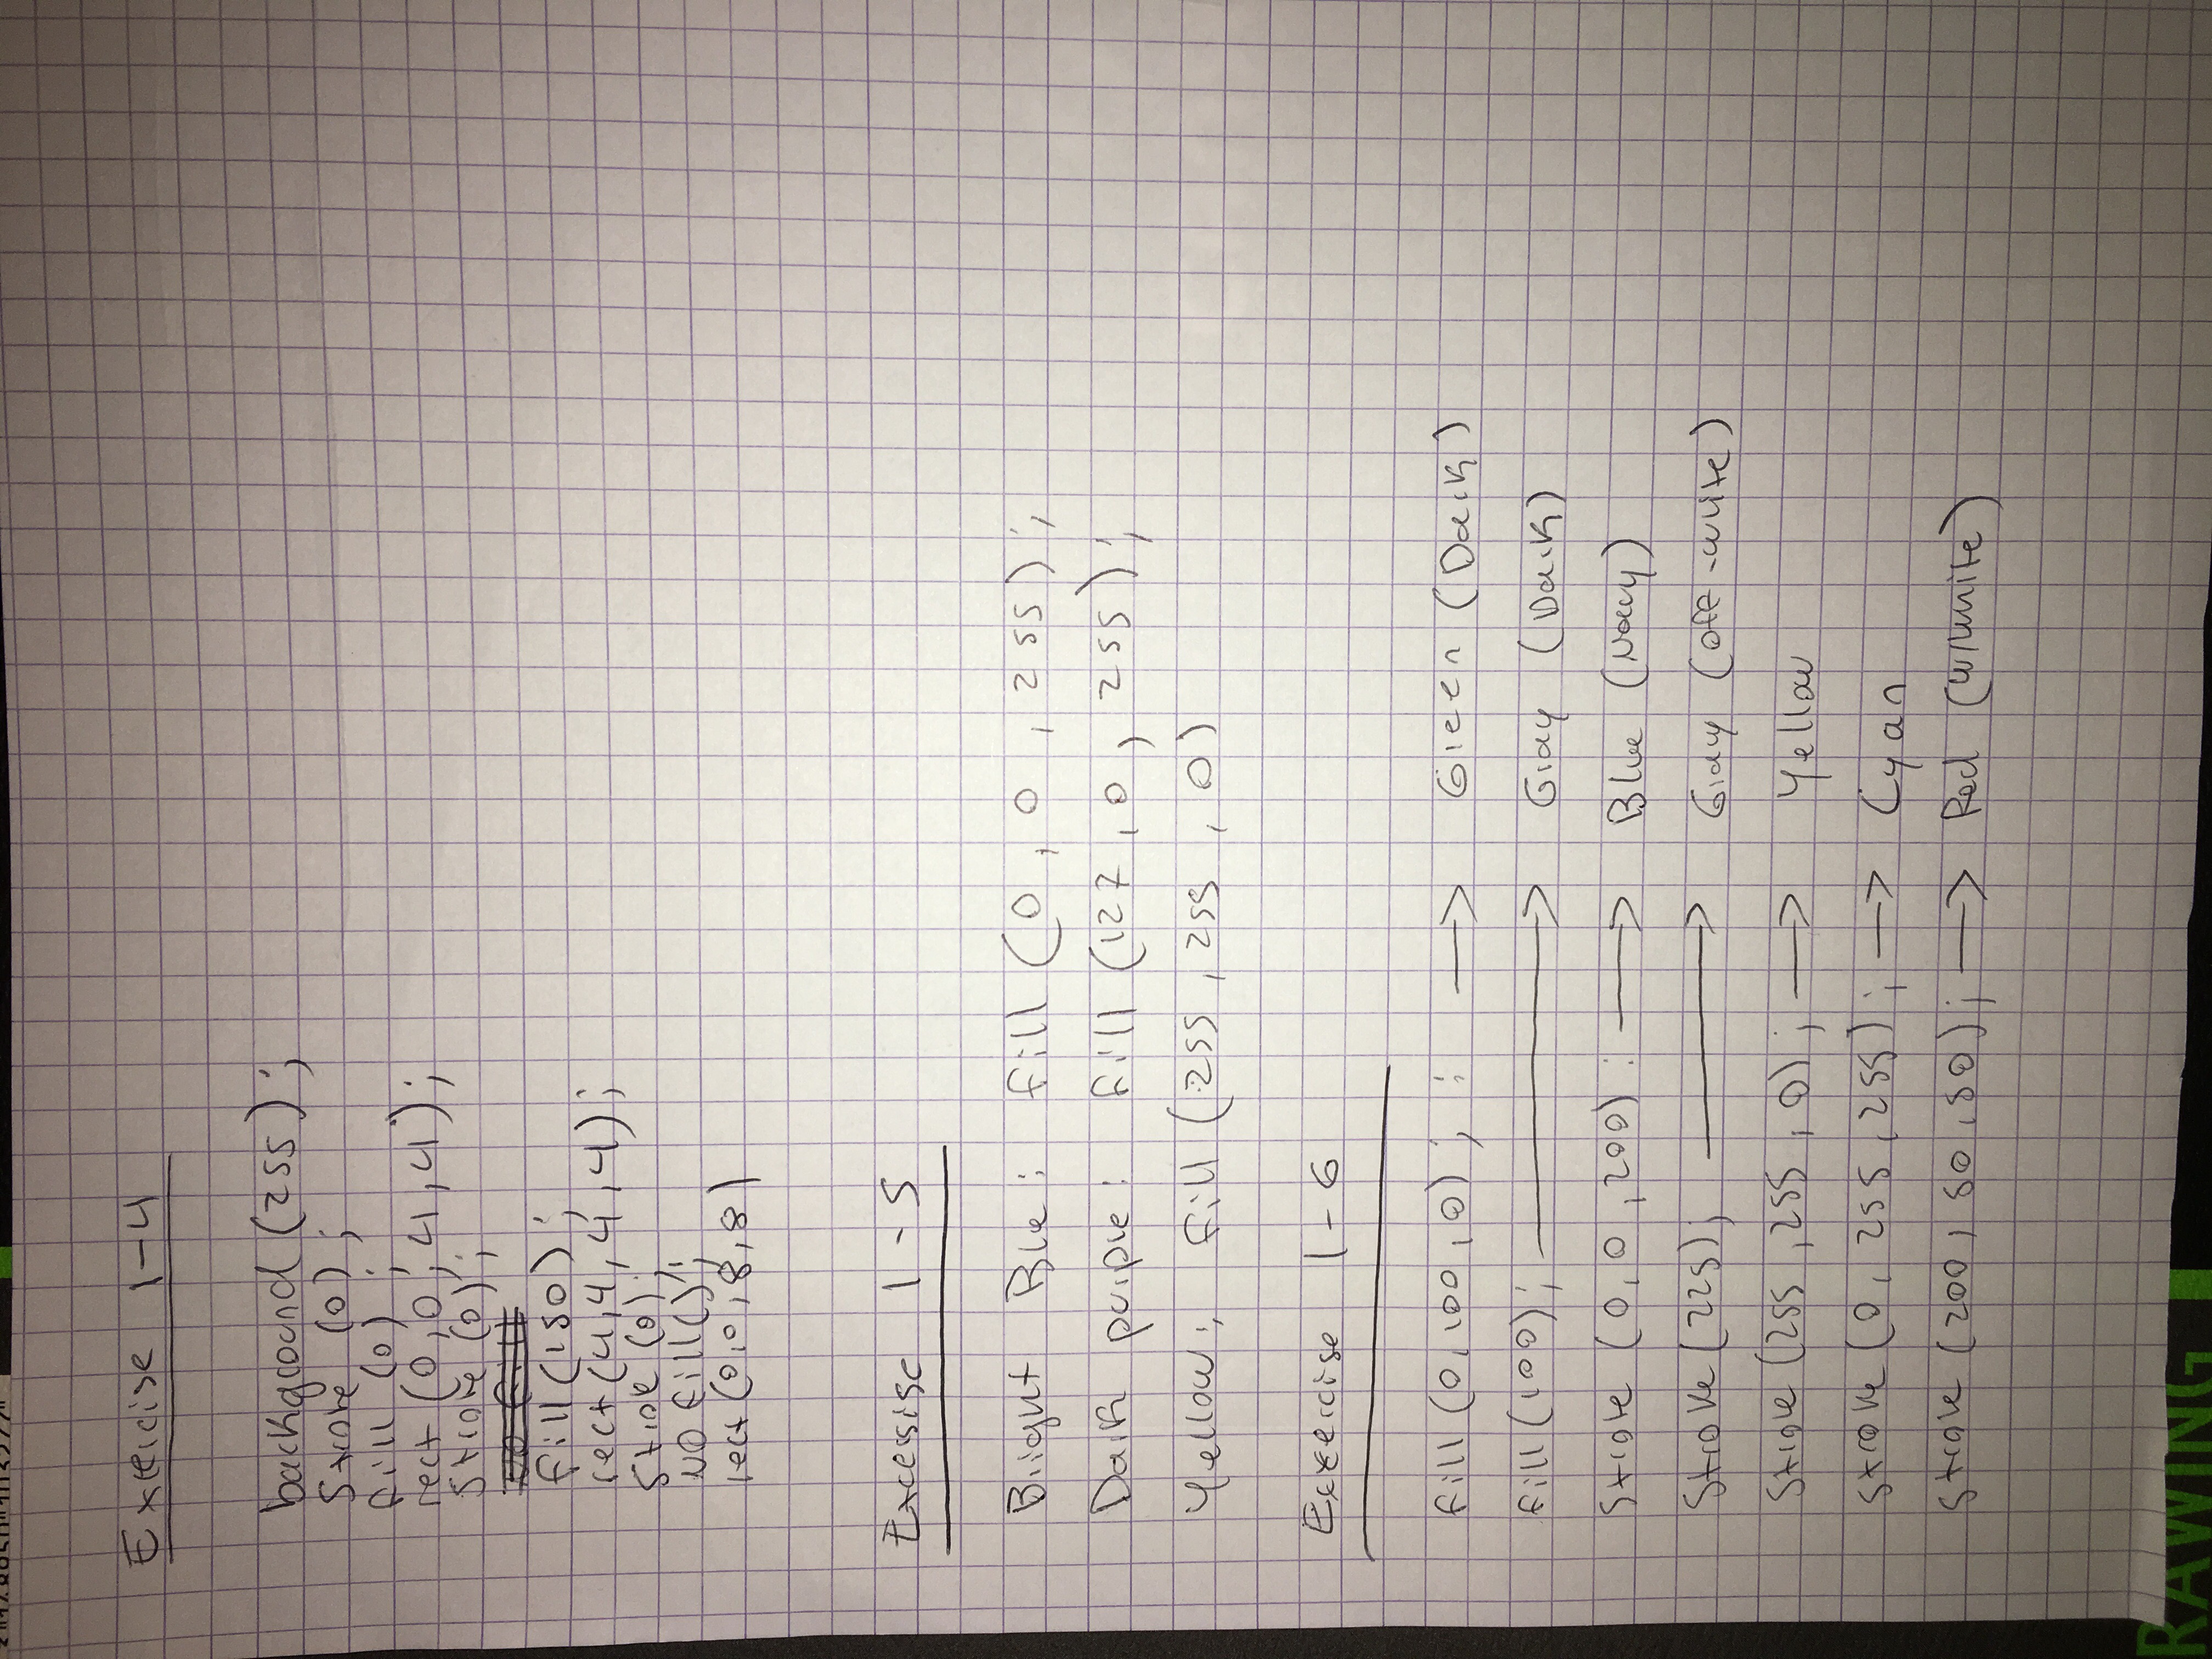 Exercise 1-4
background (255);
Stroke (0);
fill (0);
rect (0,0,4,4);
Stroke (0);
No fill
fill (150);
rect (4,4,4,4);
Stroke (0);
NO fill();
rect (0,0,8,8)
Excersise 1-5
Bright Blue: fill (0, 0, 255);
Dark purple: fill (127, 0, 255);
Yellow: fill (255, 255, 0)
Exxercise 1-6
fill (0,100,0); : → Green (Dark)
fill (100); → Gray (Dark)
Stroke (0,0,200): → Blue (Navy)
Stroke (225); → Gray (off-white)
Stroke (255,255,0); → Yellow
Stroke (0,255,255); → Cyan
Stroke (200,50,50); → Red (w/white)
RAWING